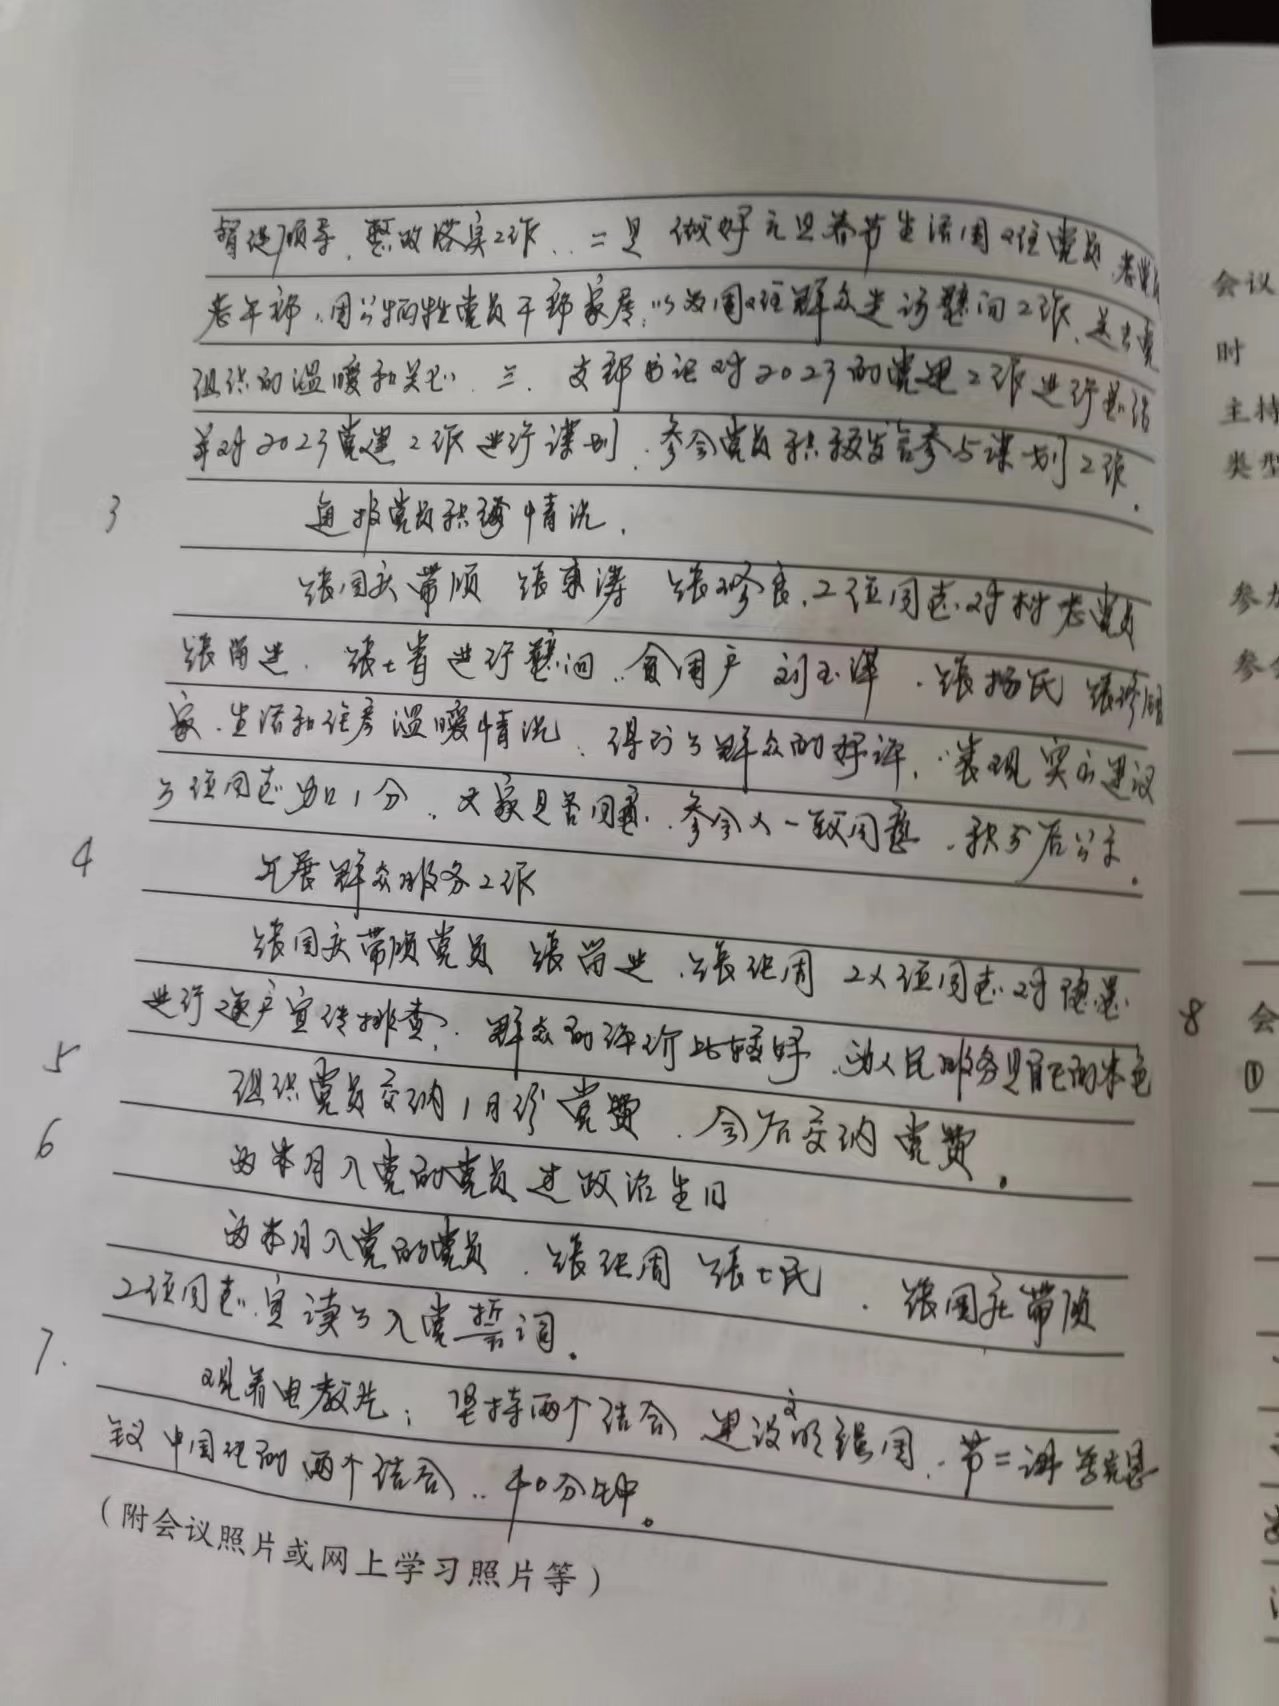 督促领导、整改落实工作、二是做好元旦春节生活困难党员 老党员
老干部、因公牺牲党员干部家属,以及困难群众走访慰问工作、送去党
组织的温暖和关心、三、支部书记对2023的党建工作进行总结
并对2023党建工作进行谋划、参会党员积极发言参与谋划工作。
3 通报党员积分情况、
张国庆带领 张 张 、2位同志、对村老党员
张留进、张士 进行慰问、贫困户 刘玉 、张杨氏 张
家、生活和住房温暖情况、得到了群众的好评、表现突出建议
3位同志加1分、大家是否同意、参会人一致同意、积分后公示。
4 开展群众服务工作
张国庆带领党员 张留进、张纪周 2人位同志、对
进行逐户宣传排查、群众的评价比较好、为人民服务是自己的本色
5 组织党员交纳1月份党费、会后交纳党费。
6 为本月入党的党员过政治生日
为本月入党的党员、张纪周 张士民、张国庆带领
2位同志、宣读了入党誓词。
7. 观看电教片;坚持两个结合 建设文明强国、节二讲 马克思
主义中国化的两个结合、40分钟。
(附会议照片或网上学习照片等)
会议
时
主持
类型
参加
参会
8 会
①